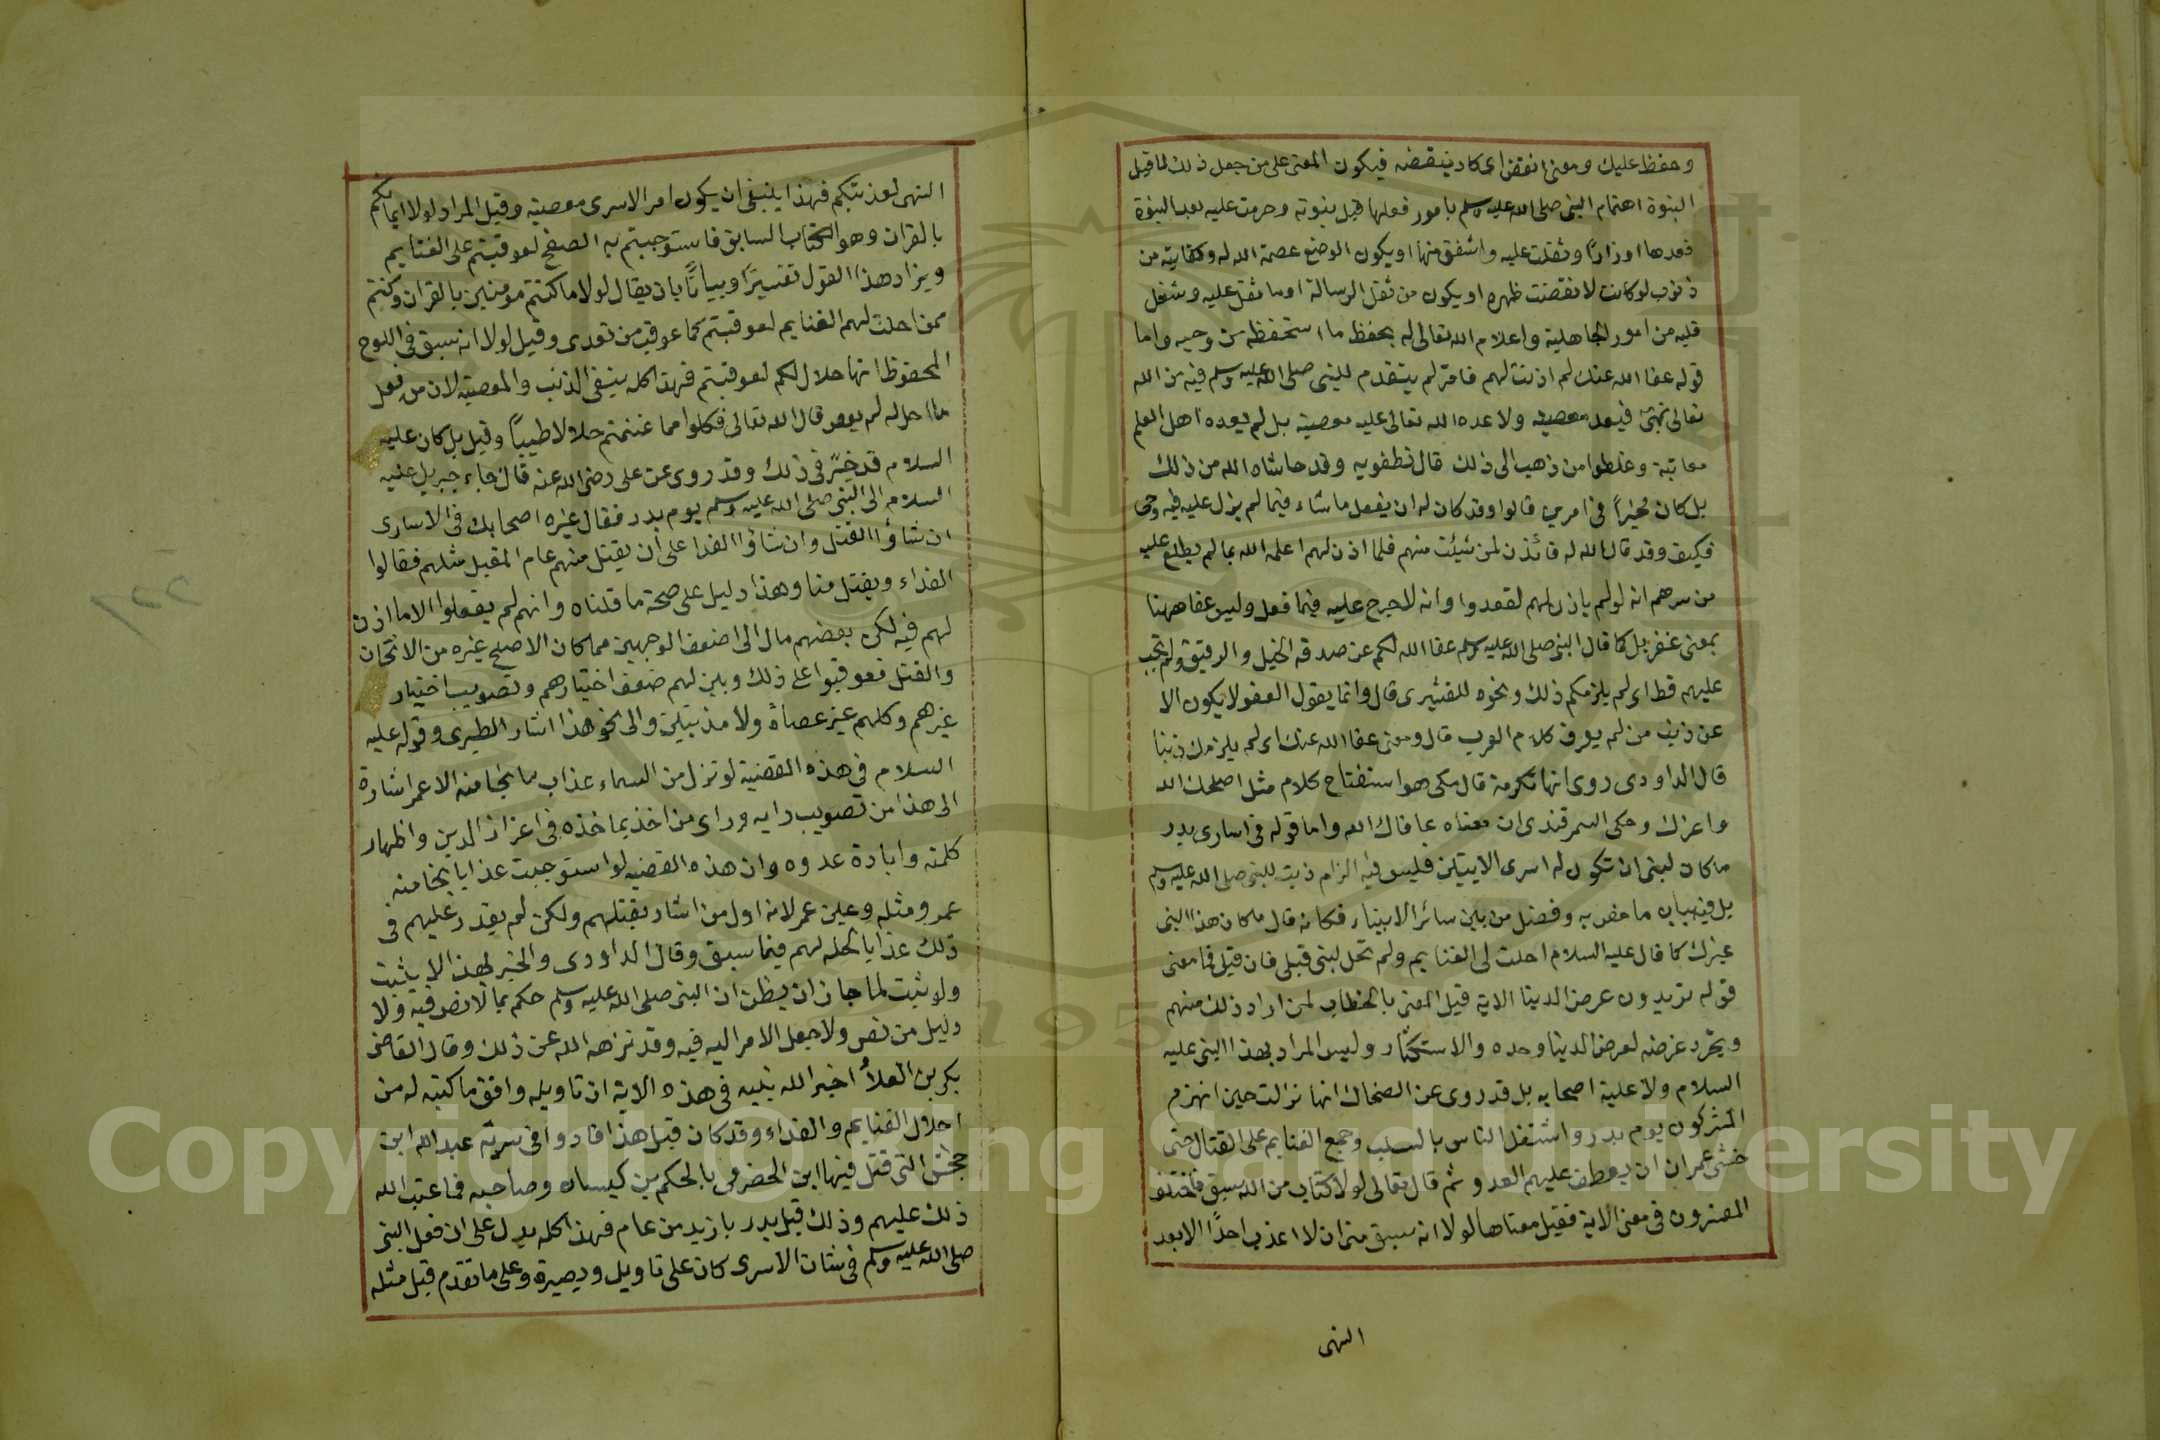 وحفظ عليك ومعنى انقض اى كاد ينقضه فيكون المعنى على من جعل ذلك لما قبل
النبوة اهتمام النبى صلى الله عليه وسلم بامور فعلها قبل بنوته وحرمت عليه بعد النبوة
فعدها اوزارًا وثقلت عليه واشفق منها او يكون الوضع عصمة الله له وكفايته من
ذنوب لو كانت لانقضت ظهره او يكون من ثقل الرسالة او ما ثقل عليه وشغل
قلبه من امور الجاهلية واعلام الله تعالى له بحفظ ما استحفظه من وحيه واما
قوله عفا الله عنك لم اذنت لهم فامر لم يتقدم للنبى صلى الله عليه وسلم فيه من الله
تعالى نهى فيعد معصية ولا عده الله تعالى عليه معصية بل لم يعده اهل العلم
معاتبة وغلطوا من ذهب الى ذلك قال نطفويه وقد حاشاه الله من ذلك
بل كان مخيرًا فى امرين قالوا وقد كان له ان يفعل ما شاء فيما لم ينزل عليه فيه وحى
فكيف وقد قال الله له فائذن لمن شئت منهم فلما اذن لهم اعلمه الله بما لم يطلع عليه
من سرهم انه لو لم ياذن لهم لقعدوا وانه لا حرج عليه فيما فعل وليس عفا ههنا
بمعنى غفر بل كما قال النبى صلى الله عليه وسلم عفا الله لكم عن صدقه الخيل والرقيق ولم تجب
عليهم قط اى لم يلزمكم ذلك ونحوه للقشيرى قال وانما يقول العفو لا يكون الا
عن ذنب من لم يعرف كلام العرب قال ومعنى عفا الله عنك اى لم يلزمك ذنبا
قال الداودى روى انها تكرمة قال مكى هو استفتاح كلام مثل اصلحك الله
واعزك وحكى السمرقندى ان معناه عافاك الله واما قوله فى اسارى بدر
ما كان لنبى ان تكون له اسرى الايتين فليس فيه الزام ذنب للنبى صلى الله عليه وسلم
بل فيه بيان ما خص به وفضل من بين سائر الانبياء فكانه قال ما كان هذا النبى
غيرك كما قال عليه السلام احلت لى الغنايم ولم تحل لنبى قبلى فان قيل فما معنى
قوله تريدون عرض الدينا الاية قيل المعنى بالخطاب لمن اراد ذلك منهم
وتجرد غرضه لعرض الدينا وحده والاستكثار وليس المراد بهذا النبى عليه
السلام ولا علية اصحابه بل قد روى عن الضحاك انها نزلت حين انهزم
المشركون يوم بدر واشتغل الناس بالسلب وجمع الغنايم على القتال حتى
خشى عمر ان ان يعطف عليهم العدو ثم قال تعالى لولا كتاب من الله سبق فاختلف
المفسرون فى معنى الاية فقيل معناها لولا انه سبق منى ان لا اعذب احدًا الا بعد
النهى
النهى لعذبتكم فهذا ينبفى ان يكون امر الاسرى معصية وقيل المراد لولا ايمانكم
بالقران وهو الكتاب السابق فاستوجبتم به الصفح لعوقبتم على الغنايم
ويزاد هذا القول تفسيرًا وبيانًا بان يقال لولا ما كنتم مؤمنين بالقران وكنتم
ممن احلت لهم الغنايم لعوقبتم كما عوقب من تعدى وقيل لولا انه سبق فى اللوح
المحفوظ انها حلال لكم لعوقبتم فهذا كله ينفى الذنب والمعصية لان من فعل
ما احل له لم يعص قال الله تعالى فكلوا مما غنمتم حلالا طيبًا وقيل بل كان عليه
السلام قد خيّر فى ذلك وقد روى عن على رضى الله عنه قال جاء جبريل عليه
السلام الى النبى صلى الله عليه وسلم يوم بدر فقال خيره اصحابك فى الاسارى
ان شاؤا القتل وان شاؤا الفدا على ان يقتل منهم عام المقبل مثلهم فقالوا
الفداء ويقتل منا وهذا دليل على صحة ما قلناه وانهم لم يفعلوا الا ما اذن
لهم فيه لكن بعضهم مال الى اضعف الوجهين مما كان الاصلح غيره من الاثخان
والقتل فعوقبوا على ذلك وبين لهم ضعف اختيارهم وتصويب اختيار
غيرهم وكلهم غير عصاة ولا مذنبين والى نحو هذا اشار الطبرى وقوله عليه
السلام فى هذه القضية لو نزل من السماء عذاب ما نجا منه الا عمر اشارة
الى هذا من تصويب رايه وراى من اخذ بماخذه فى اعزاز الدين واظهار
كلمته وابادة عدوه وان هذه القضيه لو استوجبت عذابا نجا منه
عمر ومثله وعين عمر لانه اول من اشار بقتلهم ولكن لم يقدر عليهم فى
ذلك عذابا لحله لهم فيما سبق وقال الداودى والخبر بهذا لا يثبت
ولو ثبت لما جاز ان يظن ان النبى صلى الله عليه وسلم حكم بما لا نص فيه ولا
دليل من نص ولا جعل الامر اليه فيه وقد نزهه الله عن ذلك وقال القاضى
بكر بن العلاء اخبر الله نبيه فى هذه الاية ان تاويله وافق ما كتبه له من
احلال الغنايم والفداء وقد كان قبل هذا فادوا فى سرية عبد الله ابن
جحش التى قتل فيها ابن الحضرمى بالحكم بن كيسان وصاحبه فما عتب الله
ذلك عليهم وذلك قبل بدر بازيد من عام فهذا كله يدل على ان فعل النبى
صلى الله عليه وسلم فى شان الاسرى كان على تاويل وبصيرة وعلى ما تقدم قبل مثله
Copyright © King Saud University
1957